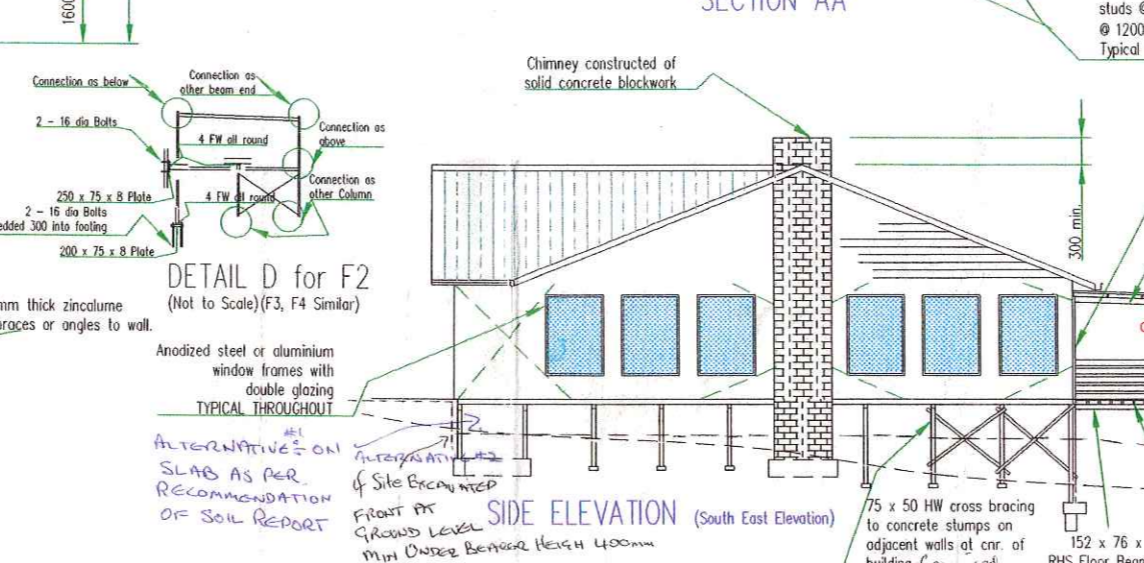 SECTION AA
1600
studs @
@ 1200
Typical
Chimney constructed of
solid concrete blockwork
Connection as below
Connection as
other beam end
2 - 16 dia Bolts
4 FW all round
Connection as
above
Connection as
other Column
250 x 75 x 8 Plate
4 FW all round
2 - 16 dia Bolts
edded 300 into footing
200 x 75 x 8 Plate
DETAIL D for F2
(Not to Scale)(F3, F4 Similar)
300 min.
mm thick zincalume
races or angles to wall.
Anodized steel or aluminium
window frames with
double glazing
TYPICAL THROUGHOUT
ALTERNATIVE #1 ON
SLAB AS PER
RECOMMENDATION
OF SOIL REPORT
ALTERNATIVE #2
if Site EXCAVATED
FRONT AT
GROUND LEVEL
MIN UNDER BEARER HEIGH 400mm
SIDE ELEVATION (South East Elevation)
75 x 50 HW cross bracing
to concrete stumps on
adjacent walls at cnr. of
building
152 x 76 x
RHS Floor Bear